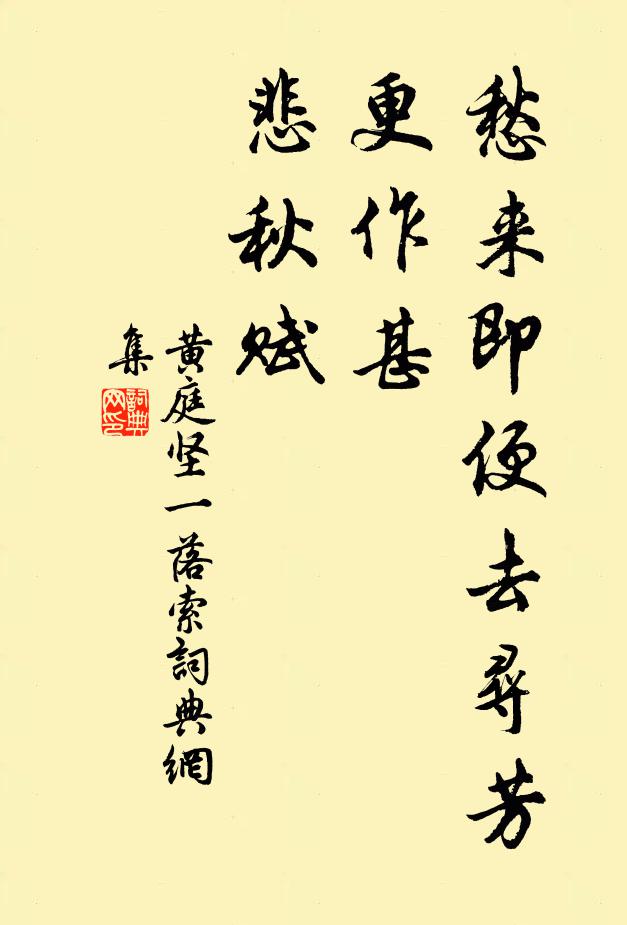 愁来即便去尋芳
更作甚
悲秋赋
黄庭坚一落索詞典網
集
詞典
网印